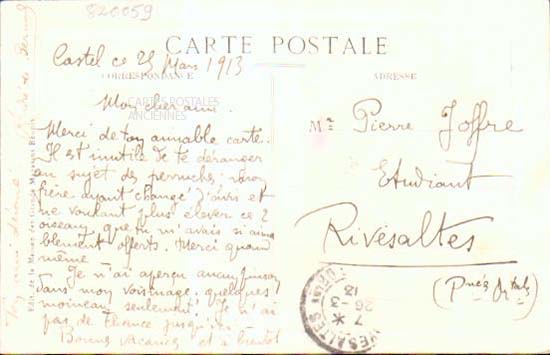 820059
CARTE POSTALE
Castel ce 25 Mars 1913
CORRESPONDANCE
ADRESSE
CARTES POSTALES
ANCIENNES
Mon cher ami.
Merci de ton aimable carte.
Il est inutile de te déranger
au sujet des perruches, mon
frère ayant changé d'avis et
ne voulant plus élever ces 2
oiseaux que tu m'avais si aima
blement offerts. Merci quand
même
Je n'ai aperçu aucun pinson
dans mon voisinage, quelques
moineaux seulement! Je n'ai
pas de
Bonnes Vacances et à bientôt
Mr Pierre Joffre
Etudiant
Rivesaltes
(Pnées Or tales)
RIVESALTES
7 * 26-3
13
Ton ami dévoué